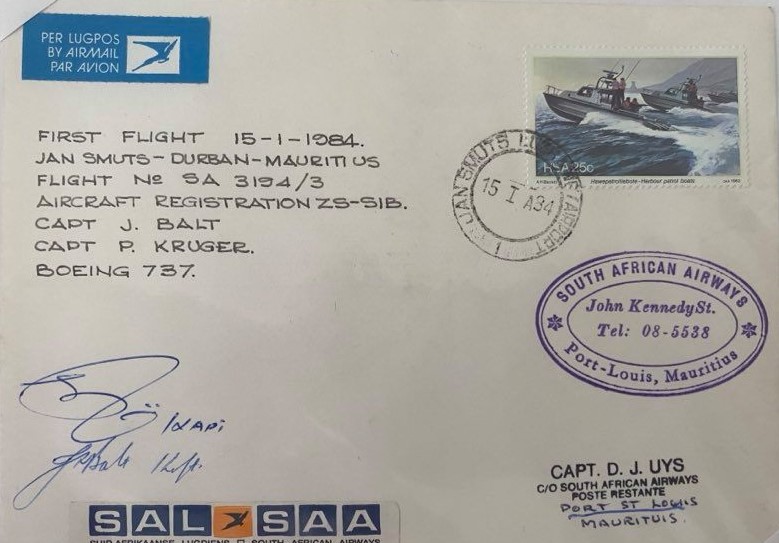 PER LUGPOS
BY AIRMAIL
PAR AVION
FIRST FLIGHT 15-1-1984.
JAN SMUTS-DURBAN-MAURITIUS
FLIGHT No SA 3194/3
AIRCRAFT REGISTRATION ZS-SIB.
CAPT J. BALT
CAPT P. KRUGER.
BOEING 737.
RSA 25c
Hawepatrolliebote - Harbour patrol boats
JAN SMUTS
15 I A84
SOUTH AFRICAN AIRWAYS
John Kennedy St.
Tel: 08-5538
Port-Louis, Mauritius
CAPT. D. J. UYS
C/O SOUTH AFRICAN AIRWAYS
POSTE RESTANTE
PORT ST LOUIS
MAURITUIS.
SAL SAA
SUID-AFRIKAANSE LUGDIENS SOUTH AFRICAN AIRWAYS